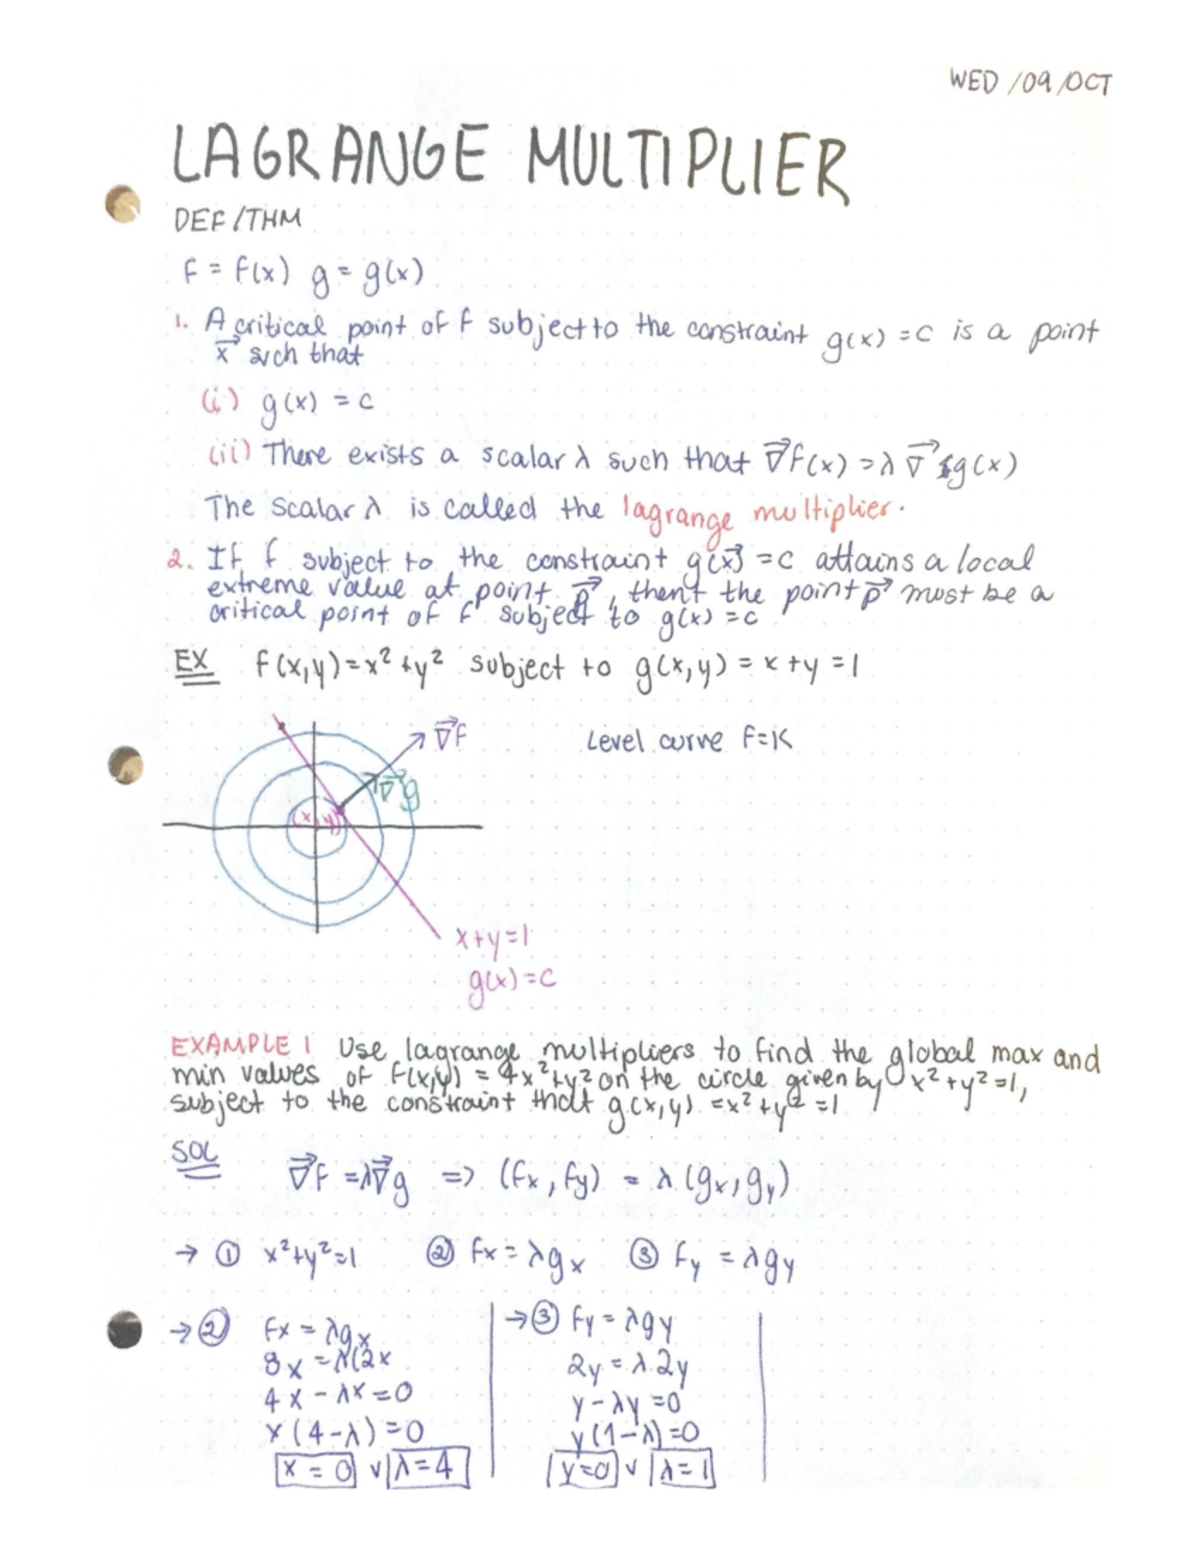 WED /09/OCT
LAGRANGE MULTIPLIER
DEF/THM
f = f(x) g = g(x)
1. A critical point of f subject to the constraint g(x) = c is a point
x⃗ such that
(i) g(x) = c
(ii) There exists a scalar λ such that ∇⃗f(x) = λ ∇⃗g(x)
The scalar λ is called the lagrange multiplier.
2. If f subject to the constraint g(x⃗) = c attains a local
extreme value at point p⃗, then the point p⃗ must be a
critical point of f subject to g(x) = c
EX f(x,y) = x² + y² subject to g(x,y) = x + y = 1
∇⃗f
Level curve f=K
∇⃗g
(x,y)
x+y=1
g(x)=c
EXAMPLE 1 Use lagrange multipliers to find the global max and
min values of f(x,y) = 4x²+y² on the circle given by x²+y²=1,
subject to the constraint that g(x,y) = x²+y² = 1
SOL
∇⃗f = λ∇⃗g => (fx, fy) = λ (gx, gy)
→ ① x²+y²=1 ② fx = λgx ③ fy = λgy
→ ② fx = λgx
8x = λ(2x
4x - λx = 0
x(4-λ) = 0
x = 0 ∨ λ = 4
→ ③ fy = λgy
2y = λ.2y
y - λy = 0
y(1-λ) = 0
y=0 ∨ λ=1